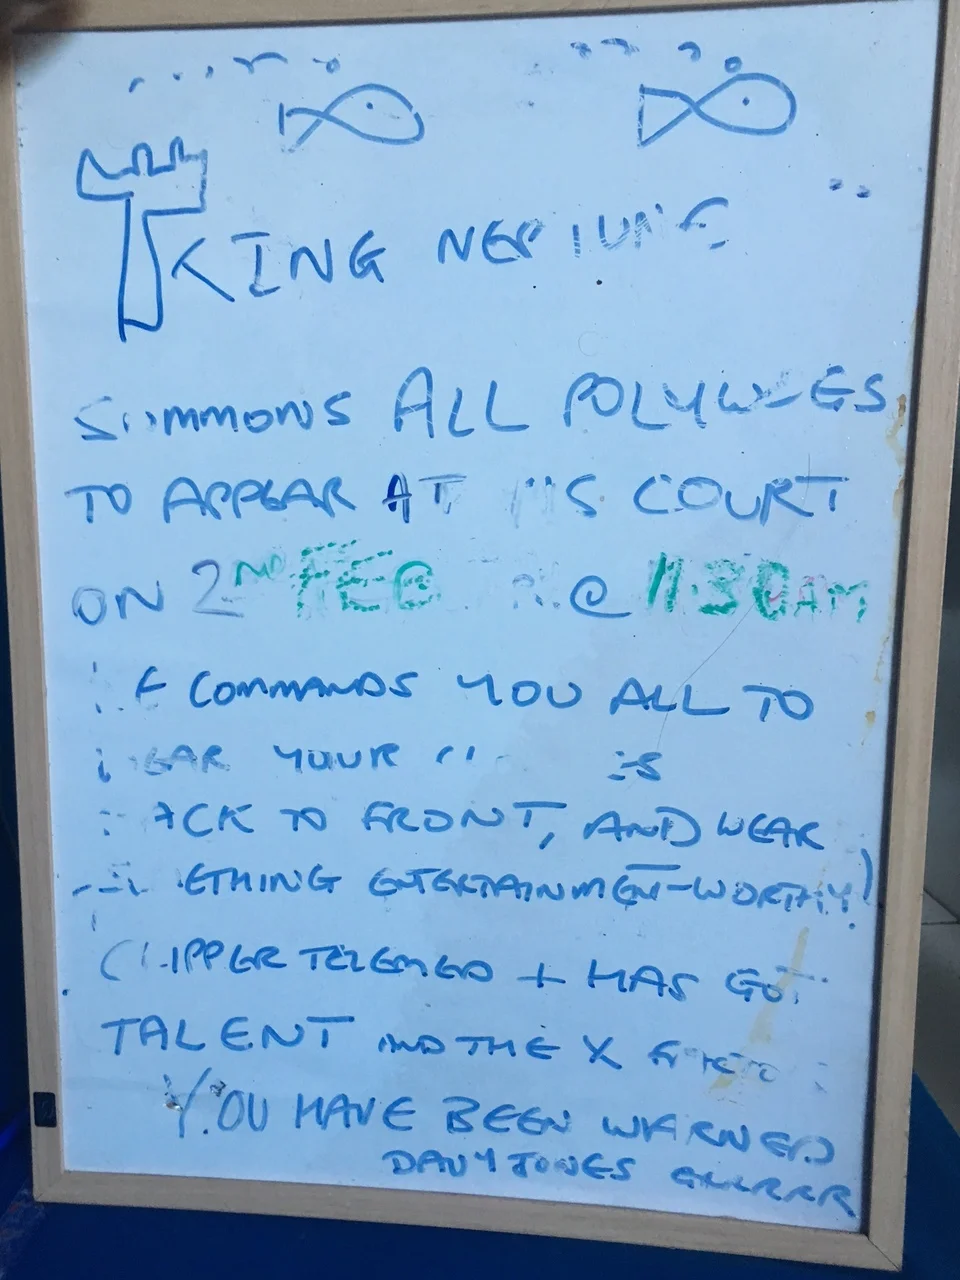 KING NEPTUNE
SUMMONS ALL POLYWOGS
TO APPEAR AT HIS COURT
ON 2ND FEB @ 11:30AM
HE COMMANDS YOU ALL TO
WEAR YOUR
BACK TO FRONT, AND WEAR
SOMETHING ENTERTAINMENT-WORTHY!
CLIPPER TELEMED + HAS GOT
TALENT AND THE X FACTOR
YOU HAVE BEEN WARNED
DAVY JONES